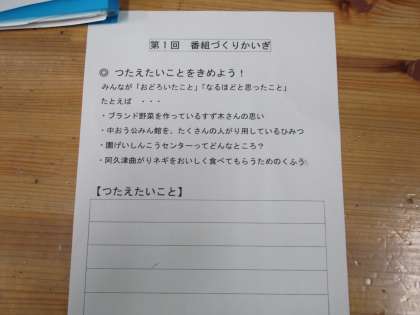 第1回　番組づくりかいぎ
◎ つたえたいことをきめよう！
みんなが「おどろいたこと」「なるほどと思ったこと」
たとえば　・・・
・ブランド野菜を作っているすず木さんの思い
・中おう公みん館を、たくさんの人がり用しているひみつ
・園げいしんこうセンターってどんなところ？
・阿久津曲がりネギをおいしく食べてもらうためのくふう
【つたえたいこと】